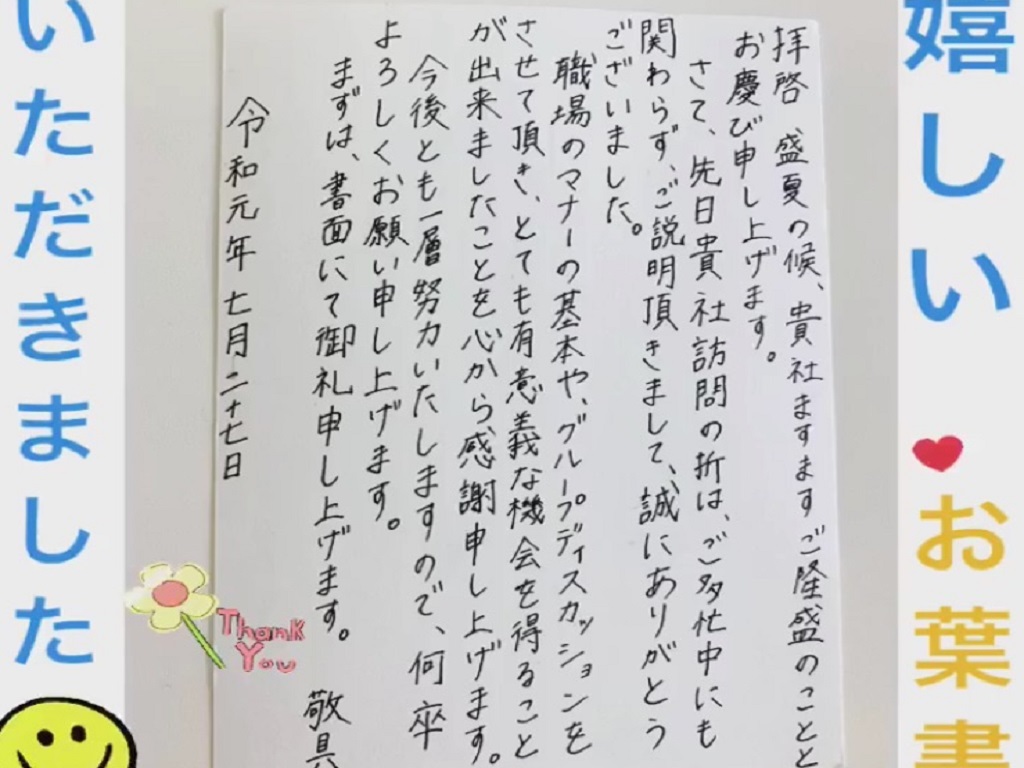 嬉しい♥お葉書
拝啓 盛夏の候、貴社ますますご隆盛のことと
お慶び申し上げます。
さて、先日貴社訪問の折は、ご多忙中にも
関わらず、ご説明頂きまして、誠にありがとう
ございました。
職場のマナーの基本や、グループディスカッションを
させて頂き、とても有意義な機会を得ること
が出来ましたことを心から感謝申し上げます。
今後とも一層努力いたしますので、何卒
よろしくお願い申し上げます。
まずは、書面にて御礼申し上げます。
敬具
令和元年七月二十七日
Thank
You
いただきました